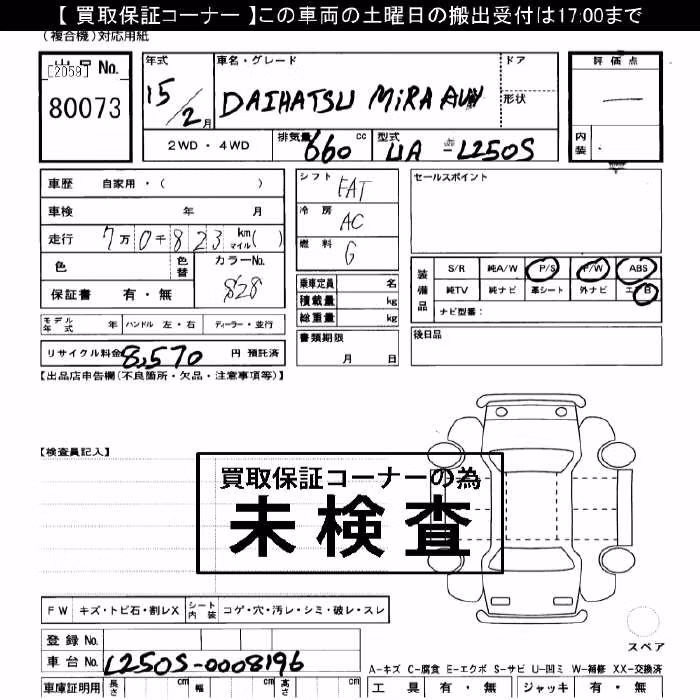 【 買取保証コーナー 】この車両の土曜日の搬出受付は17:00まで
(複合機)対応用紙
出品 No.
[2059]
80073
年式
15/2月
車名・グレード
DAIHATSU MiRA
ドア
形状
2WD ・ 4WD
排気量 660 cc
型式 UA - L250S
評価点
内装
車歴 自家用・( )
車検 年 月
走行 7万0千823 km マイル( )
色 色替 カラーNo. S28
保証書 有・無
モデル年式 年 ハンドル 左・右 ディーラー・並行
リサイクル料金 8,570 円 預託済
シフト FAT
冷房 AC
燃料 G
乗車定員 名
積載量 kg
総重量 kg
書類期限
月 日
セールスポイント
装備品
S/R 純A/W P/S P/W ABS
純TV 純ナビ 革シート 外ナビ エアB
ナビ型番:
後日品
【出品店申告欄(不良箇所・欠品・注意事項等)】
【検査員記入】
買取保証コーナーの為
未検査
FW キズ・トビ石・割レX シート内装 コゲ・穴・汚レ・シミ・破レ・スレ
登録 No.
車台 No. L250S-0008196
車庫証明用 長さ cm 幅 cm 高さ cm
スペア
A-キズ C-腐食 E-エクボ S-サビ U-凹ミ W-補修 XX-交換済
工具 有・無 ジャッキ 有・無